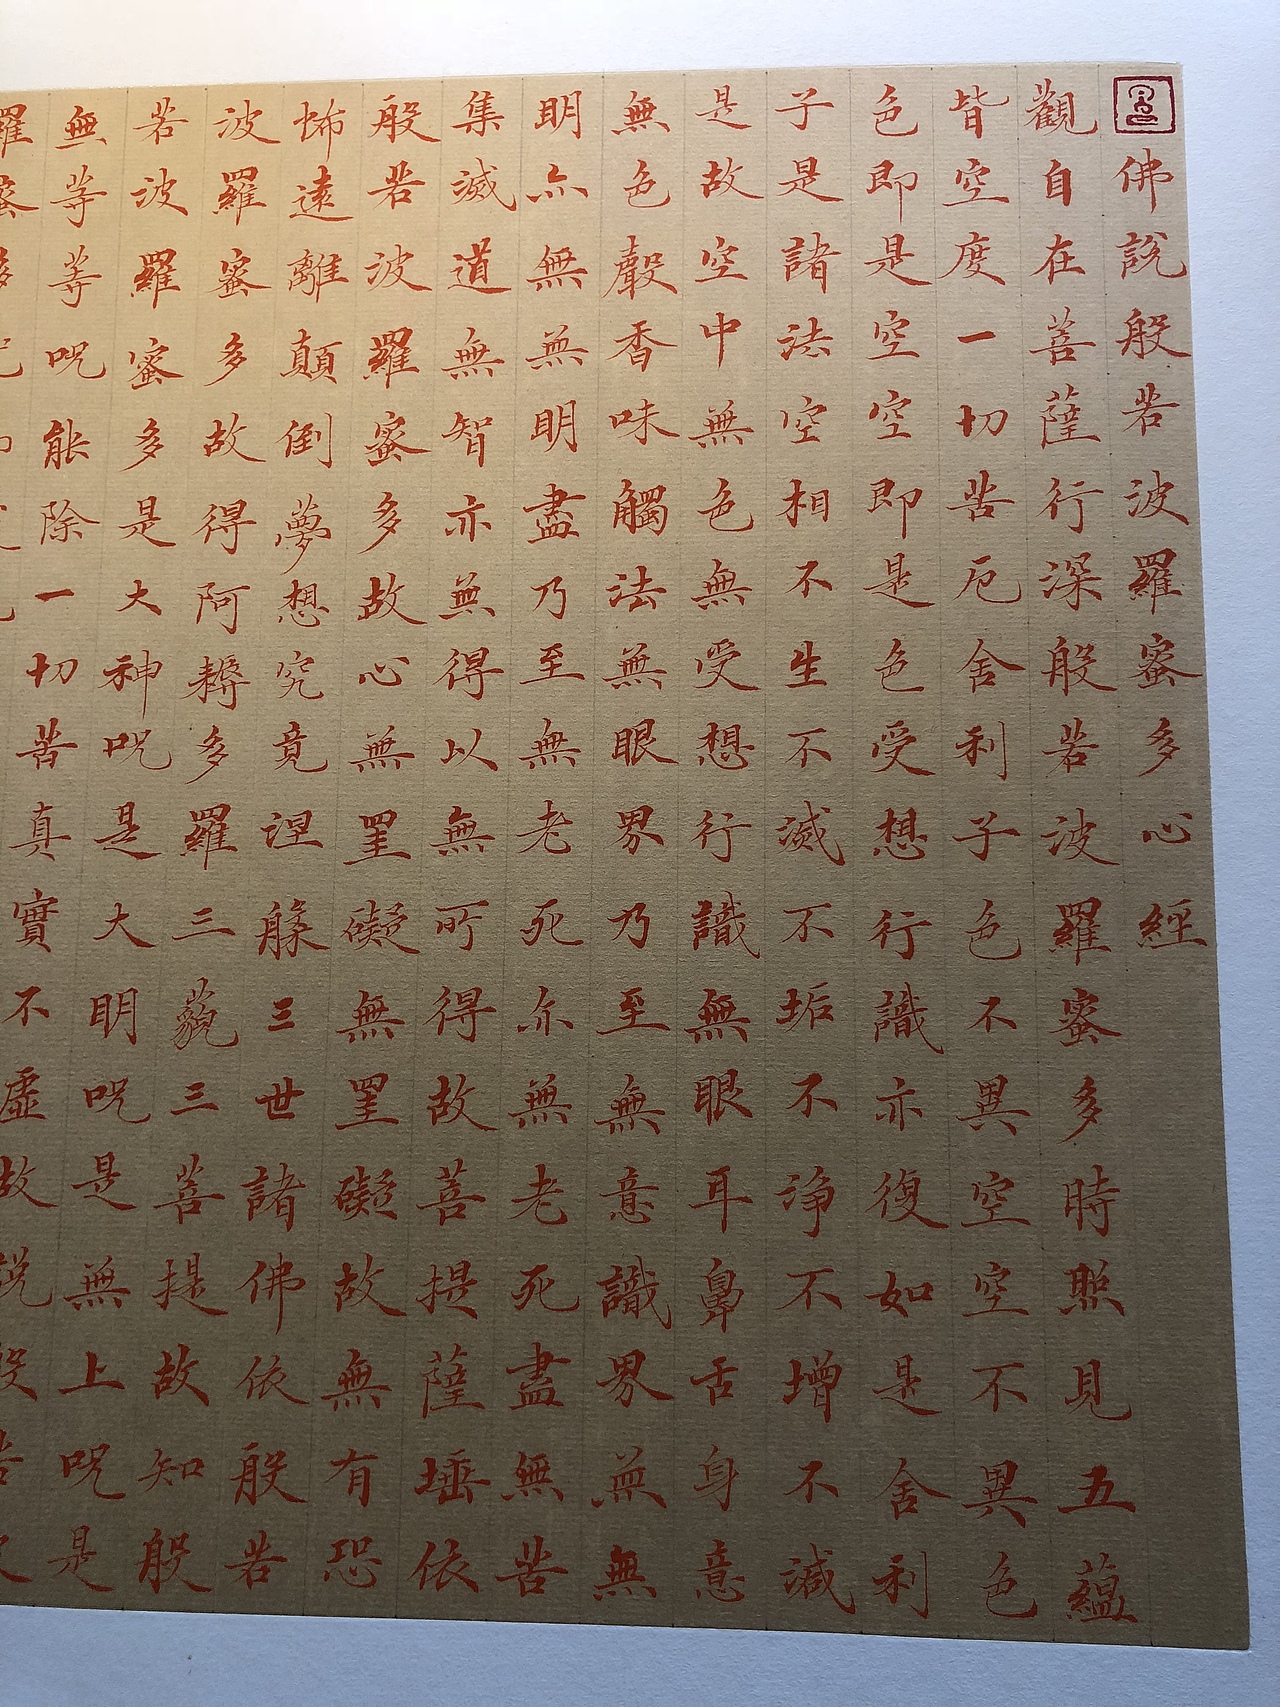 佛說般若波羅蜜多心經
觀自在菩薩行深般若波羅蜜多時照見五蘊
皆空度一切苦厄舍利子色不異空空不異色
色即是空空即是色受想行識亦復如是舍利
子是諸法空相不生不滅不垢不淨不增不減
是故空中無色無受想行識無眼耳鼻舌身意
無色聲香味觸法無眼界乃至無意識界無無
明亦無無明盡乃至無老死亦無老死盡無苦
集滅道無智亦無得以無所得故菩提薩埵依
般若波羅蜜多故心無罣礙無罣礙故無有恐
怖遠離顛倒夢想究竟涅槃三世諸佛依般若
波羅蜜多故得阿耨多羅三藐三菩提故知般
若波羅蜜多是大神咒是大明咒是無上咒是
無等等咒能除一切苦真實不虛故說般若波
羅蜜多